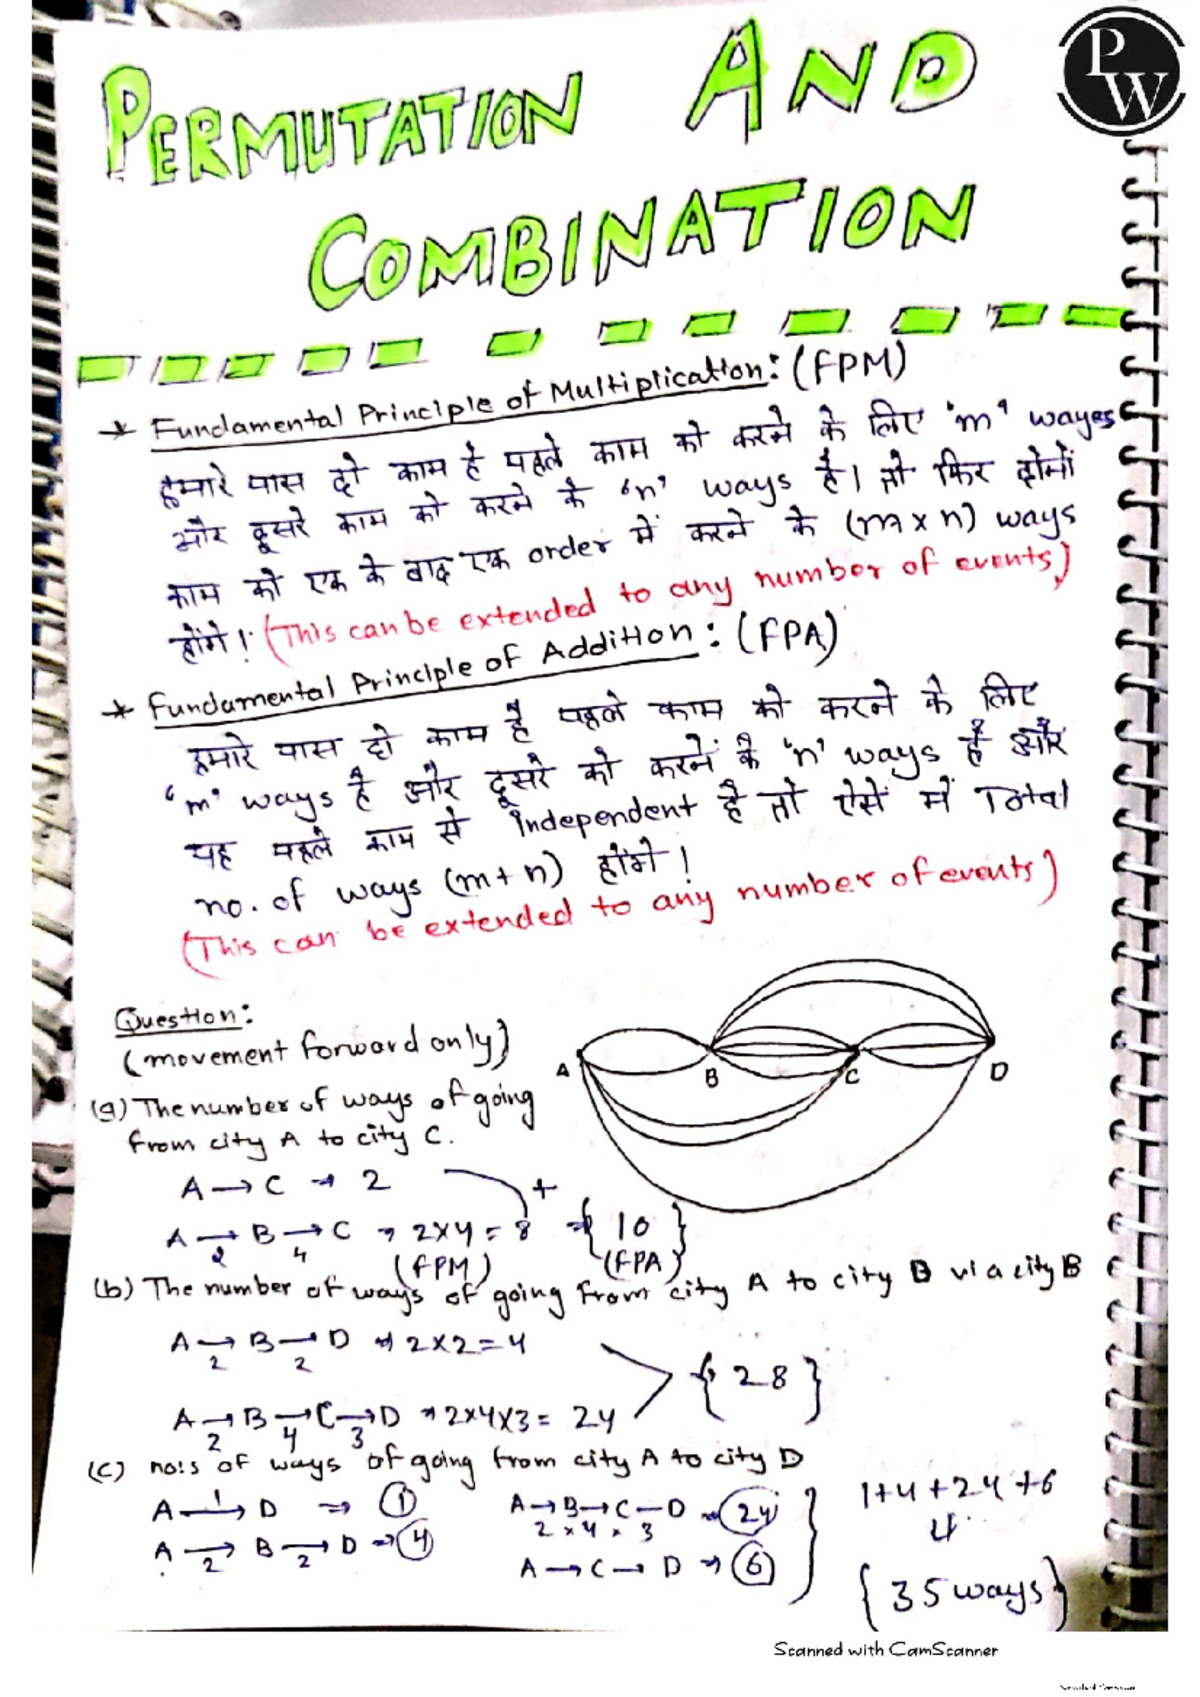 PERMUTATION AND
COMBINATION
PW
* Fundamental Principle of Multiplication : (FPM)
हमारे पास दो काम है पहले काम को करने के लिए 'm' wayes
और दूसरे काम को करने के 'n' ways है। तो फिर दोनों
काम को एक के बाद एक order में करने के (m x n) ways
होंगे! (This can be extended to any number of events)
* Fundamental Principle of Addition : (FPA)
हमारे पास दो काम है पहले काम को करने के लिए
'm' ways है और दूसरे को करनें के 'n' ways है और
यह पहले काम से independent है तो ऐसे में Total
no. of ways (m+n) होंगे!
(This can be extended to any number of events)
Question:
(movement forward only)
A B C D
(a) The number of ways of going
from city A to city C.
A → C → 2
+
A → B → C → 2x4 = 8 ⇒ { 10 }
2 4 (FPM) (FPA)
(b) The number of ways of going from city A to city D via city B
A → B → D ⇒ 2x2=4
2 2
{ 28 }
A → B → C → D ⇒ 2x4x3 = 24
2 4 3
(c) no:s of ways of going from city A to city D
A → D ⇒ 1
1
A → B → C – D ⇒ 24
2 x 4 x 3
1+4+24+6
A → B → D ⇒ 4
2 2
A → C → D ⇒ 6
{ 35 ways }
Scanned with CamScanner